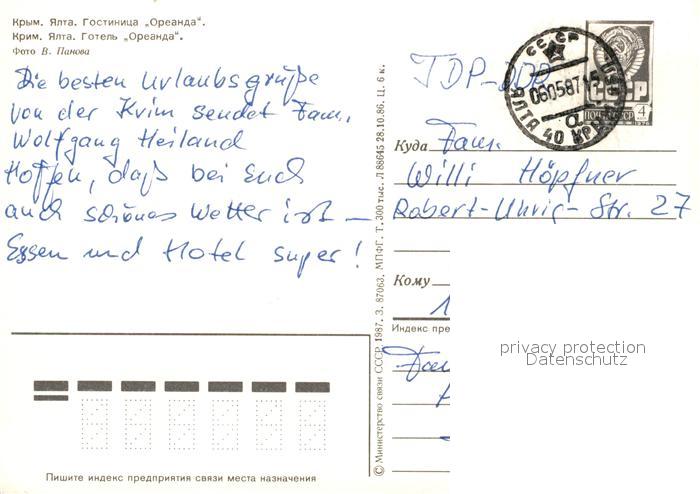 Крым. Ялта. Гостиница „Ореанда“.
Крим. Ялта. Готель „Ореанда“.
Фото В. Панова
Die besten Urlaubsgrüße
von der Krim sendet Fam.
Wolfgang Heiland
Hoffen, daß bei Euch
auch schönes Wetter ist –
Essen und Hotel super!
Пишите индекс предприятия связи места назначения
© Министерство связи СССР, 1987. З. 87063. МПФГ. Т. 300 тыс. Л 88645 28.10.86. Ц. 6 к.
СССР
060587
ЯЛТА
СССР
ПОЧТА СССР
4
ГДР-DDR
Куда Fam.
Willi Höpfner
Robert-Uhrig-Str. 27
Кому
Индекс пре
Fam
privacy protection
Datenschutz